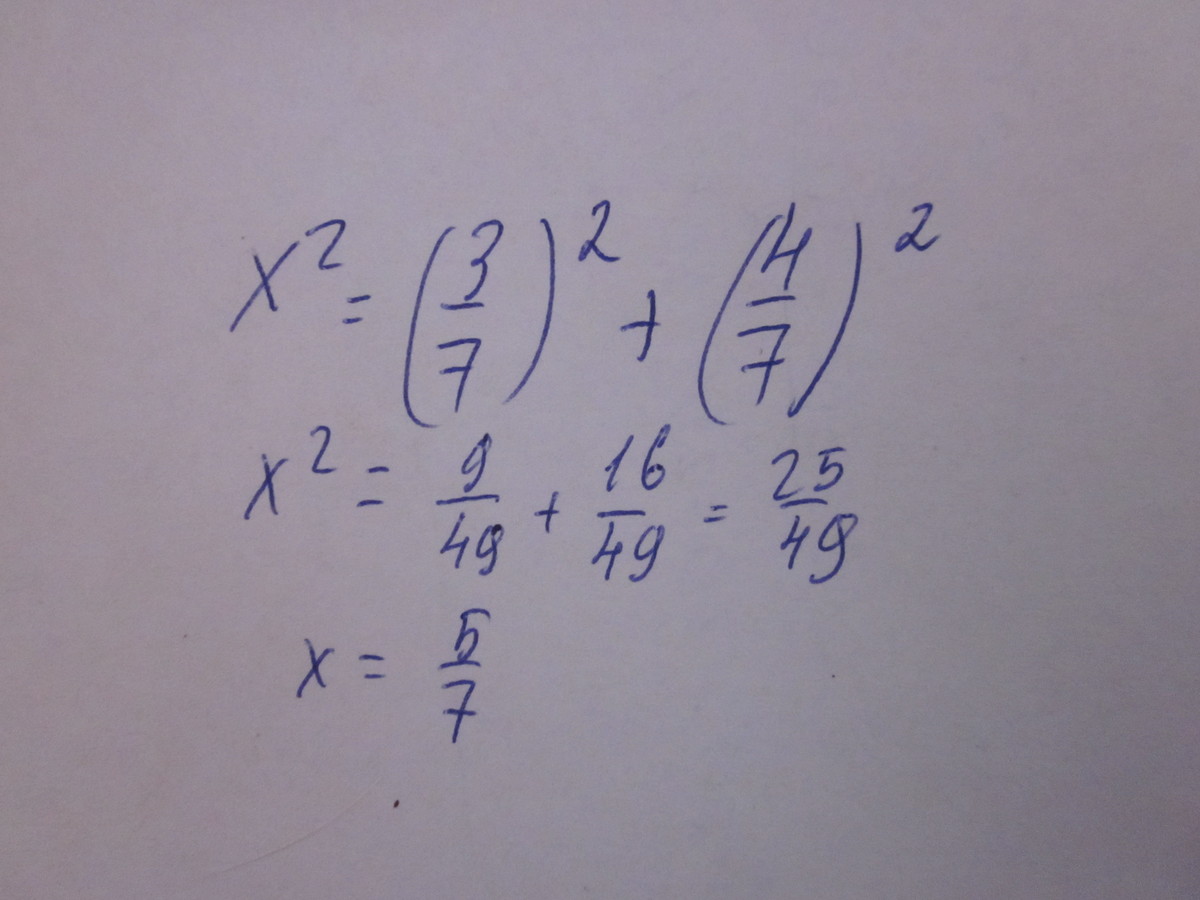 x² = (3/7)² + (4/7)²
x² = 9/49 + 16/49 = 25/49
x = 5/7